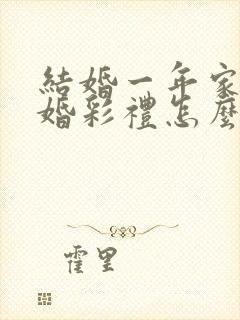 結婚一年家
婚彩禮怎麼
霍里